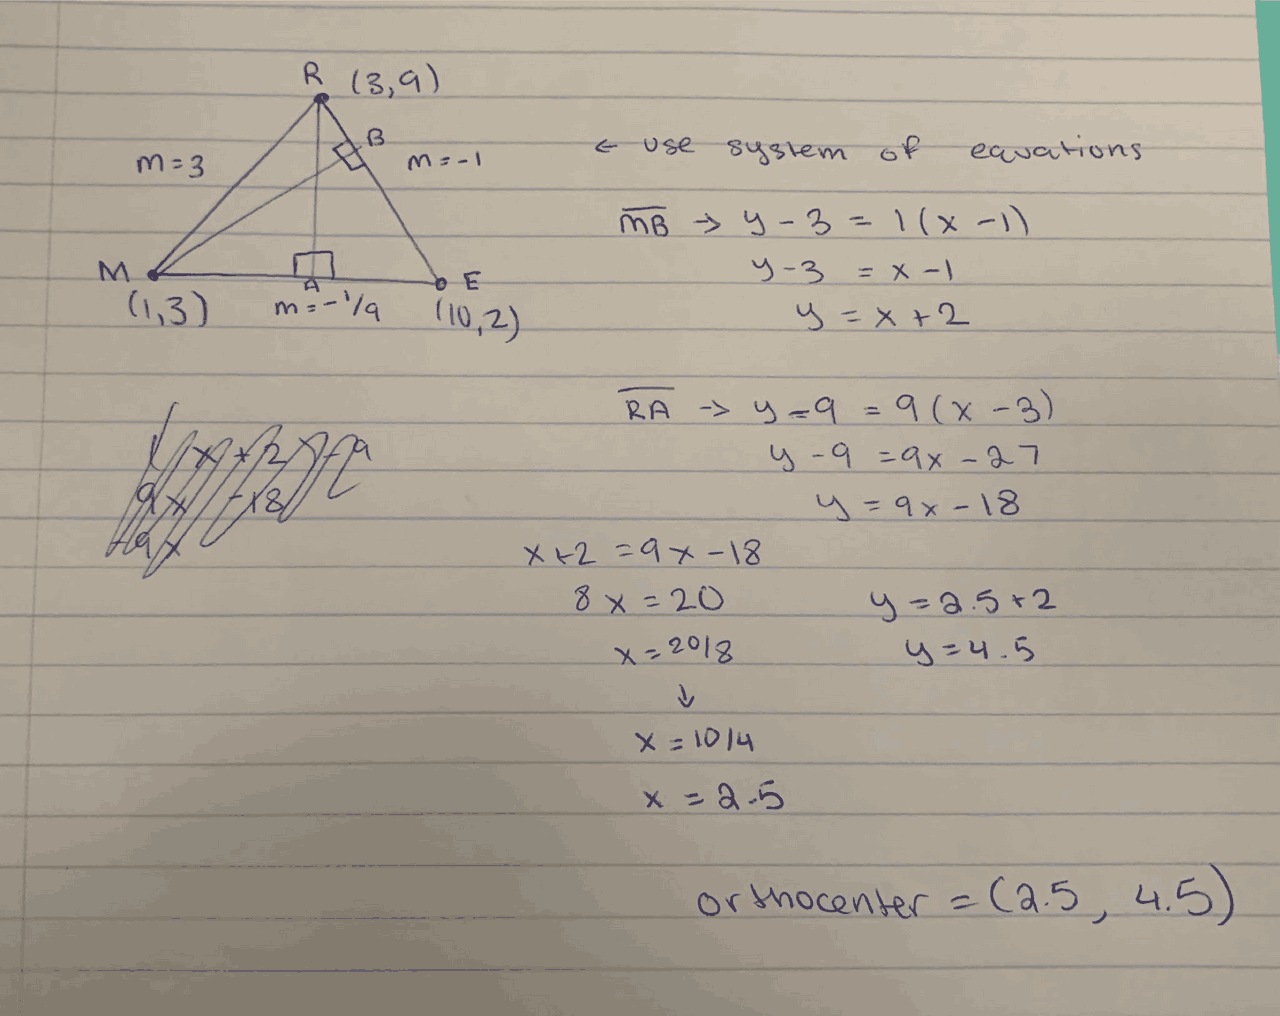 R (3,9)
B
m=3
m=-1
M
A
E
(1,3)
m=-1/9
(10,2)
← use system of equations
MB → y-3 = 1(x-1)
y-3 = x-1
y = x+2
RA → y-9 = 9(x-3)
y-9 = 9x-27
y = 9x-18
x+2 = 9x-18
8x = 20
x = 20/8
↓
x = 10/4
x = 2.5
y = 2.5+2
y = 4.5
orthocenter = (2.5, 4.5)